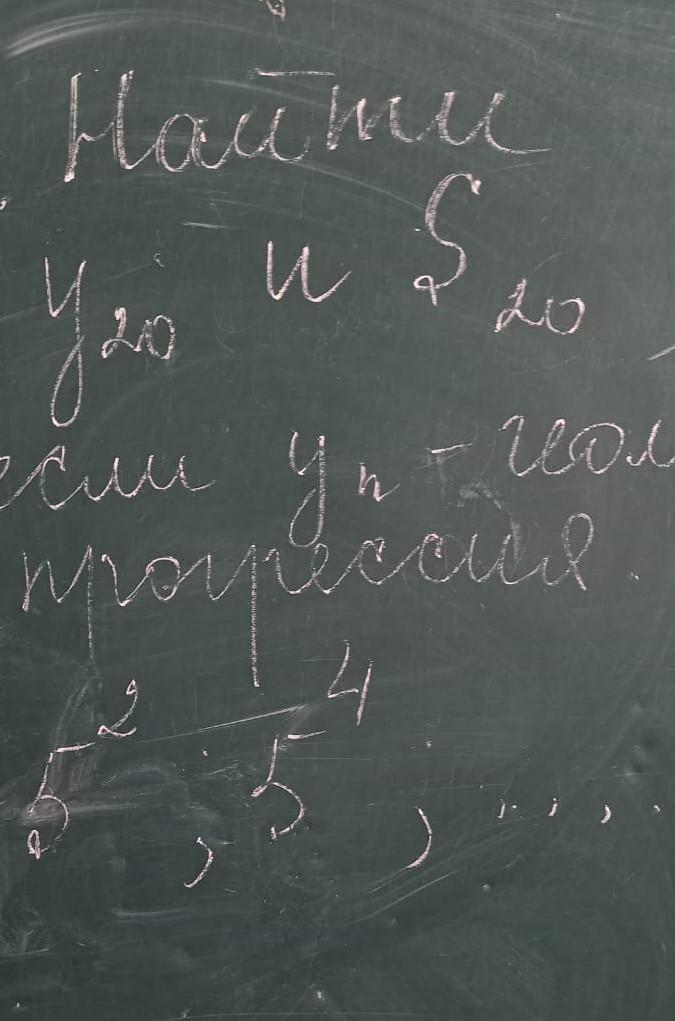 Найти
y₂₀ и S₂₀
если yₙ - геом
прогрессия
5², 5⁴, ....